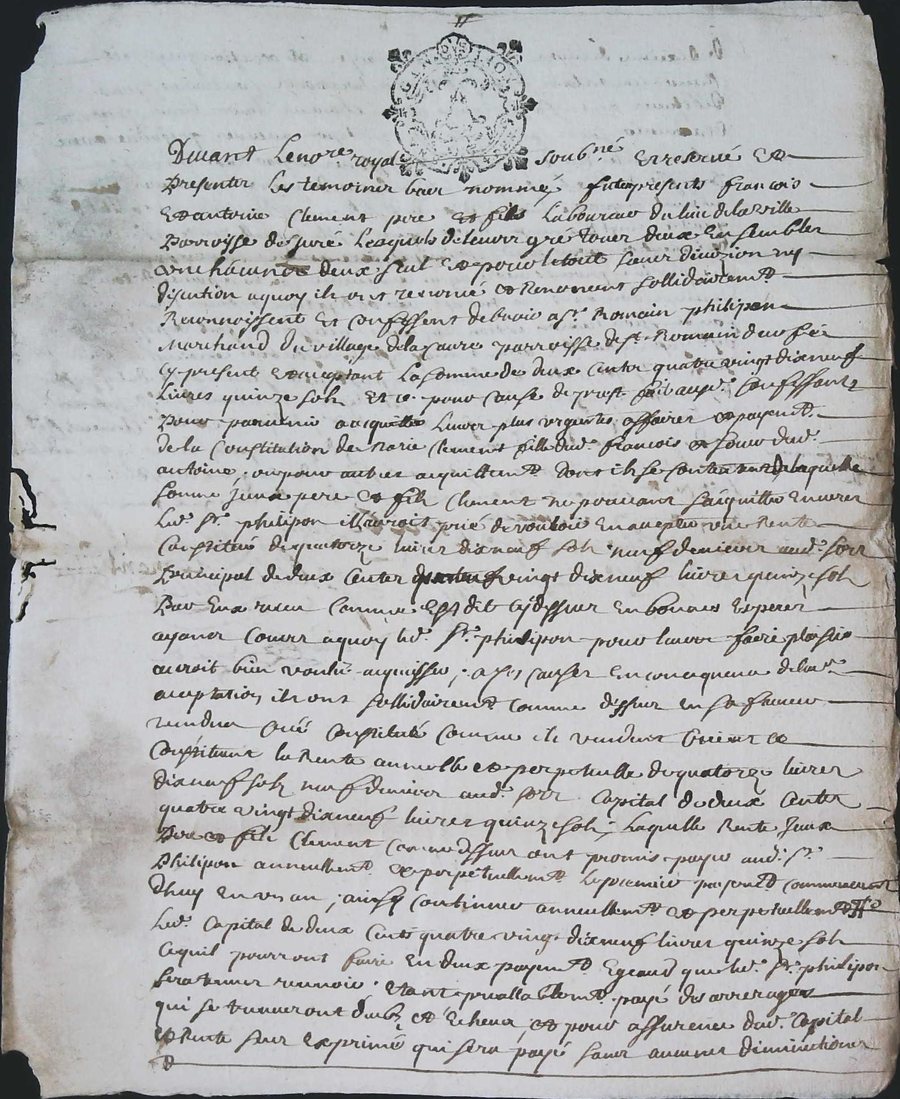 Devant Lenore royal soubné Et reservé Et
Presenter Les temoiner bas nommés furent presents François
Et antoine Clement pere et fils Laboureur du lieu de la ville
Parroisse de Juré Lesquels de leurs gré tous deux Ensembles
un chaiun deux seul et pour le tout sans division ny
discution a quoy ils ont renoncé et Renoncent sollidairemt
Reconnoissent Et Confessent debvoir a Sr. Romain philipon
Marchand du village de la faure parroisse de St. Romain
Cy present Et acceptant La somme de deux Centz quatre vingt dixneuf
Livres quinze solz Et ce pour Cause de prest
Pour parvenir a acquitter Leurs plus urgentes affaires et payemt.
de la Constitution de Marie Clement fille dud. François et soeur dud.
antoine, ou pour autres acquittemt dont ils se contentent de laquelle
somme Jceux pere et filz Clement ne pouvant saquitter Envers
Led. Sr. philipon illauroit prié de vouloir En accepter une Rente
Constitué de quatorze livres dixneuf solz neuf deniers aud. sort
Principal de deux Centez vingt dixneuf livres quinze solz
Par Eux receu Comme Est dit cydessus En bonnes Especes
ayant Cours a quoy led. Sr. philipon pour leurs faire plaisir
auroit bien voulu acquiesser, a ces Causes En consequence de lad.
acceptation ils ont sollidairemt Comme dessus En sa faveur
vendu Créé Constitué Comme ils vendent Créent et
Constituent la Rente annuelle et perpetuelle de quatorze livres
dixneuf solz neuf deniers aud. sort Capital de deux Centz
quatre vingt dixneuf livres quinze solz, Laquelle Rente Jceux
Pere et filz Clement Comme dessus ont promis payer aud. Sr.
Philipon annuellemt. et perpetuellemt. Le premier payemt Commencant
dhuy En un an, ainsy Continuer annuellemt et perpetuellemt
Led. Capital de deux Cents quatre vingt dixneuf livres quinze solz
Ce quil pourront faire En deux payemt Egeaux que led. Sr. philipon
sera tenu recevoir, Etant preallablemt. payé des arrerages
qui se trouveront dubz et Echeux et pour assurence dud. Capital
et Rente sus Exprimé qui sera payé sans aucunes diminutions